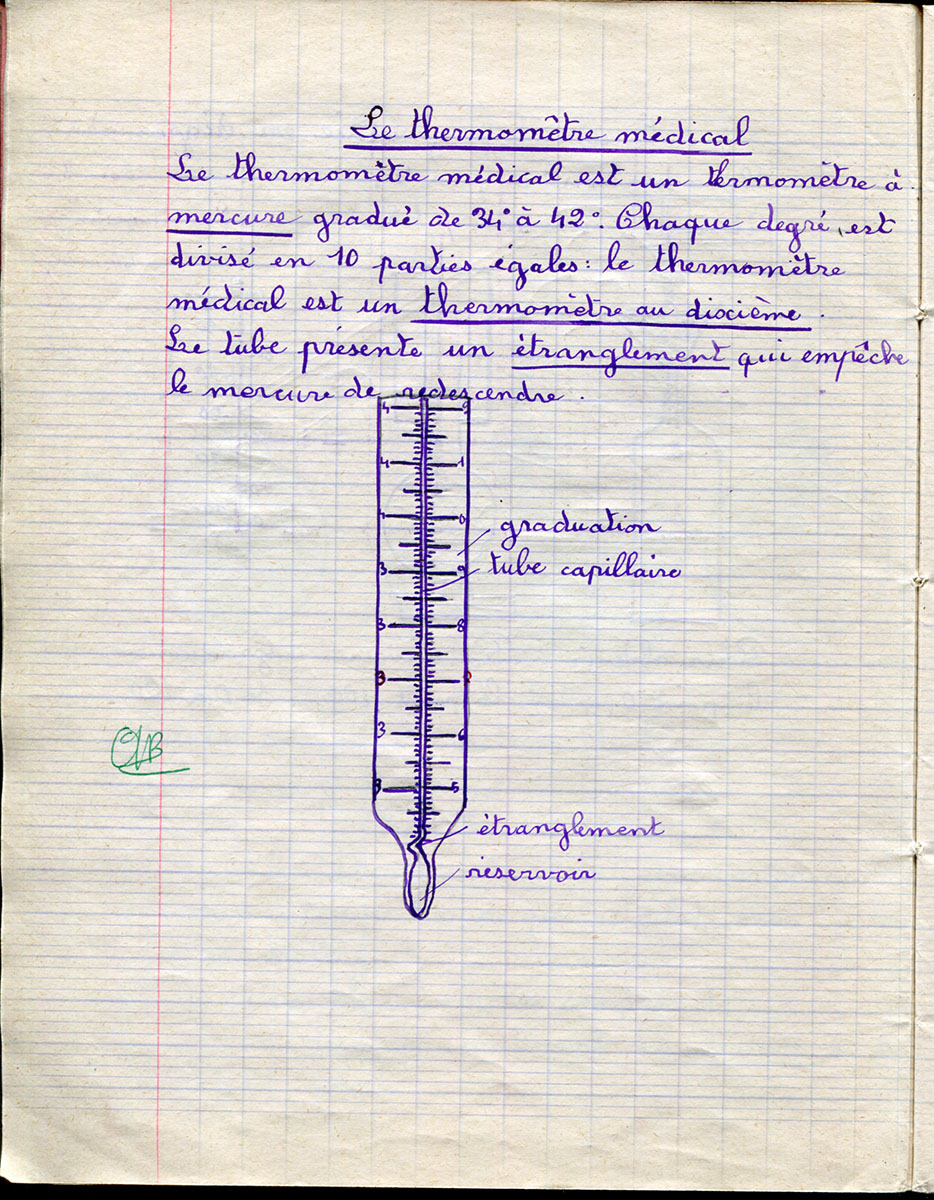 Le thermomètre médical
Le thermomètre médical est un thermomètre à
mercure gradué de 34° à 42°. Chaque degré, est
divisé en 10 parties égales : le thermomètre
médical est un thermomètre au dixième.
Le tube présente un étranglement qui empêche
le mercure de redescendre.
4 2
4 1
4 0
graduation
3 9
tube capillaire
3 8
3
3 6
3 5
étranglement
réservoir